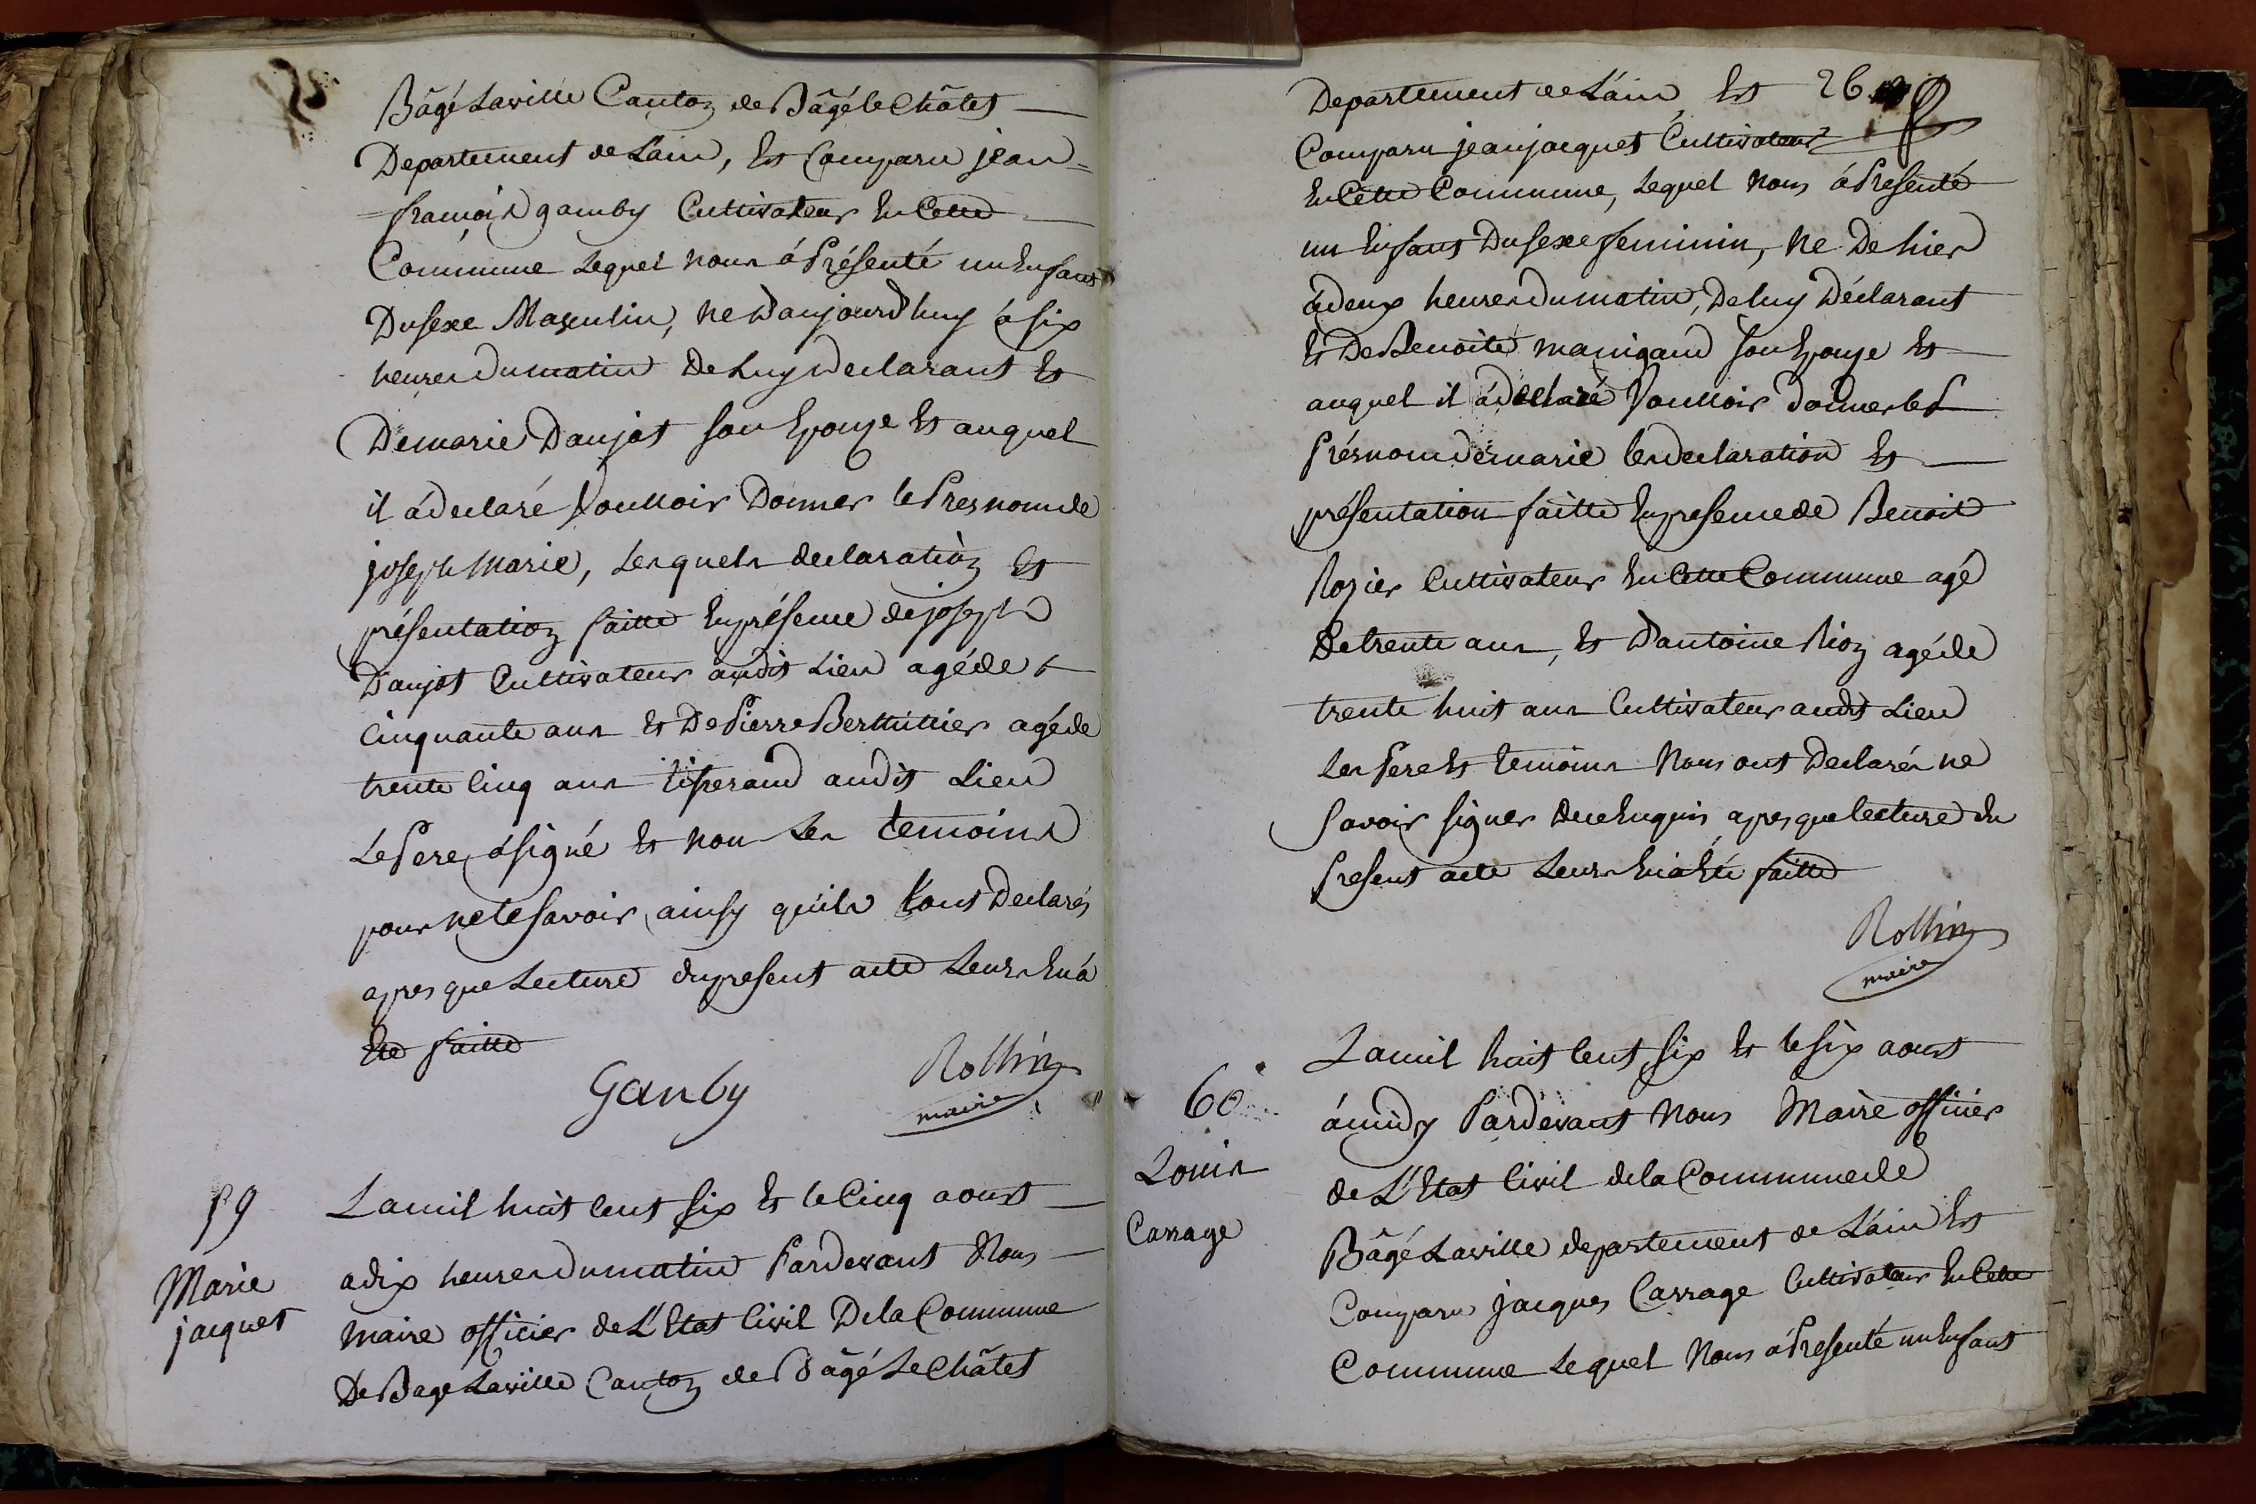 Bâgé Laville Canton de Bâgé le Châtel
Departement de L'ain, Est Comparu jean=
=françois gamby Cultivateur En Cette
Commune Lequel nous á Présenté un Enfant
Du sexe Masculin, ne D'aujourd'huy á six
heures Du matin De Luy Declarant Et
De marie Daujat son Epouse Et auquel
il á declaré Voulloir Donner le Presnom de
joseph Marie, Lesquels declaration Et
présentation faitte En présence de joseph
Daujat Cultivateur audit Lieu agé de
Cinquante ans Et De Pierre Berthillier agé de
trente Cinq ans tisserand audit Lieu
Le Pere á signé Et non Les temoins
pour ne le savoir, ainsy qu'ils L'ont Declarés
apres que Lecture du present acte Leurs En á
Eté faitte
Ganby
Rollin
maire
59
Marie
jacquet
L'an mil huit Cent six Et le Cinq aoust
a dix heures du matin Pardevant Nous
maire officier de L'Etat Civil De la Commune
De Bage Laville Canton de Bâgé Le Châtel
Departement de L'ain Est 26
Comparu jean jacquet Cultivateur
En Cette Commune, Lequel Nous á Presenté
un Enfant Du sexe feminin, Ne De hier
á deux heures du matin, De luy Déclarant
Et De Benoite manigand son Epouse Et
auquel il á declaré Voulloir donner le
Présnom de marie les declaration Et
présentation faitte En presence de Benoit
Rozier Cultivateur En Cette Commune agé
De trente ans, Et D'antoine Rion agé de
trente huit ans Cultivateur audit Lieu
Les Pere Et temoins Nous ont Declarés ne
savoir signer de ce Enquis apres que lecture du
Present acte Leurs En á Eté faitte
Rollin
maire
60
Louis
Carrage
L'an mil huit Cent six Et le six aoust
á midy Pardevant Nous Maire officier
de L'Etat Civil de la Commune de
Bâgé Laville departement de L'ain Est
Comparu jacques Carrage Cultivateur En Cette
Commune Lequel Nous á Presenté un Enfant